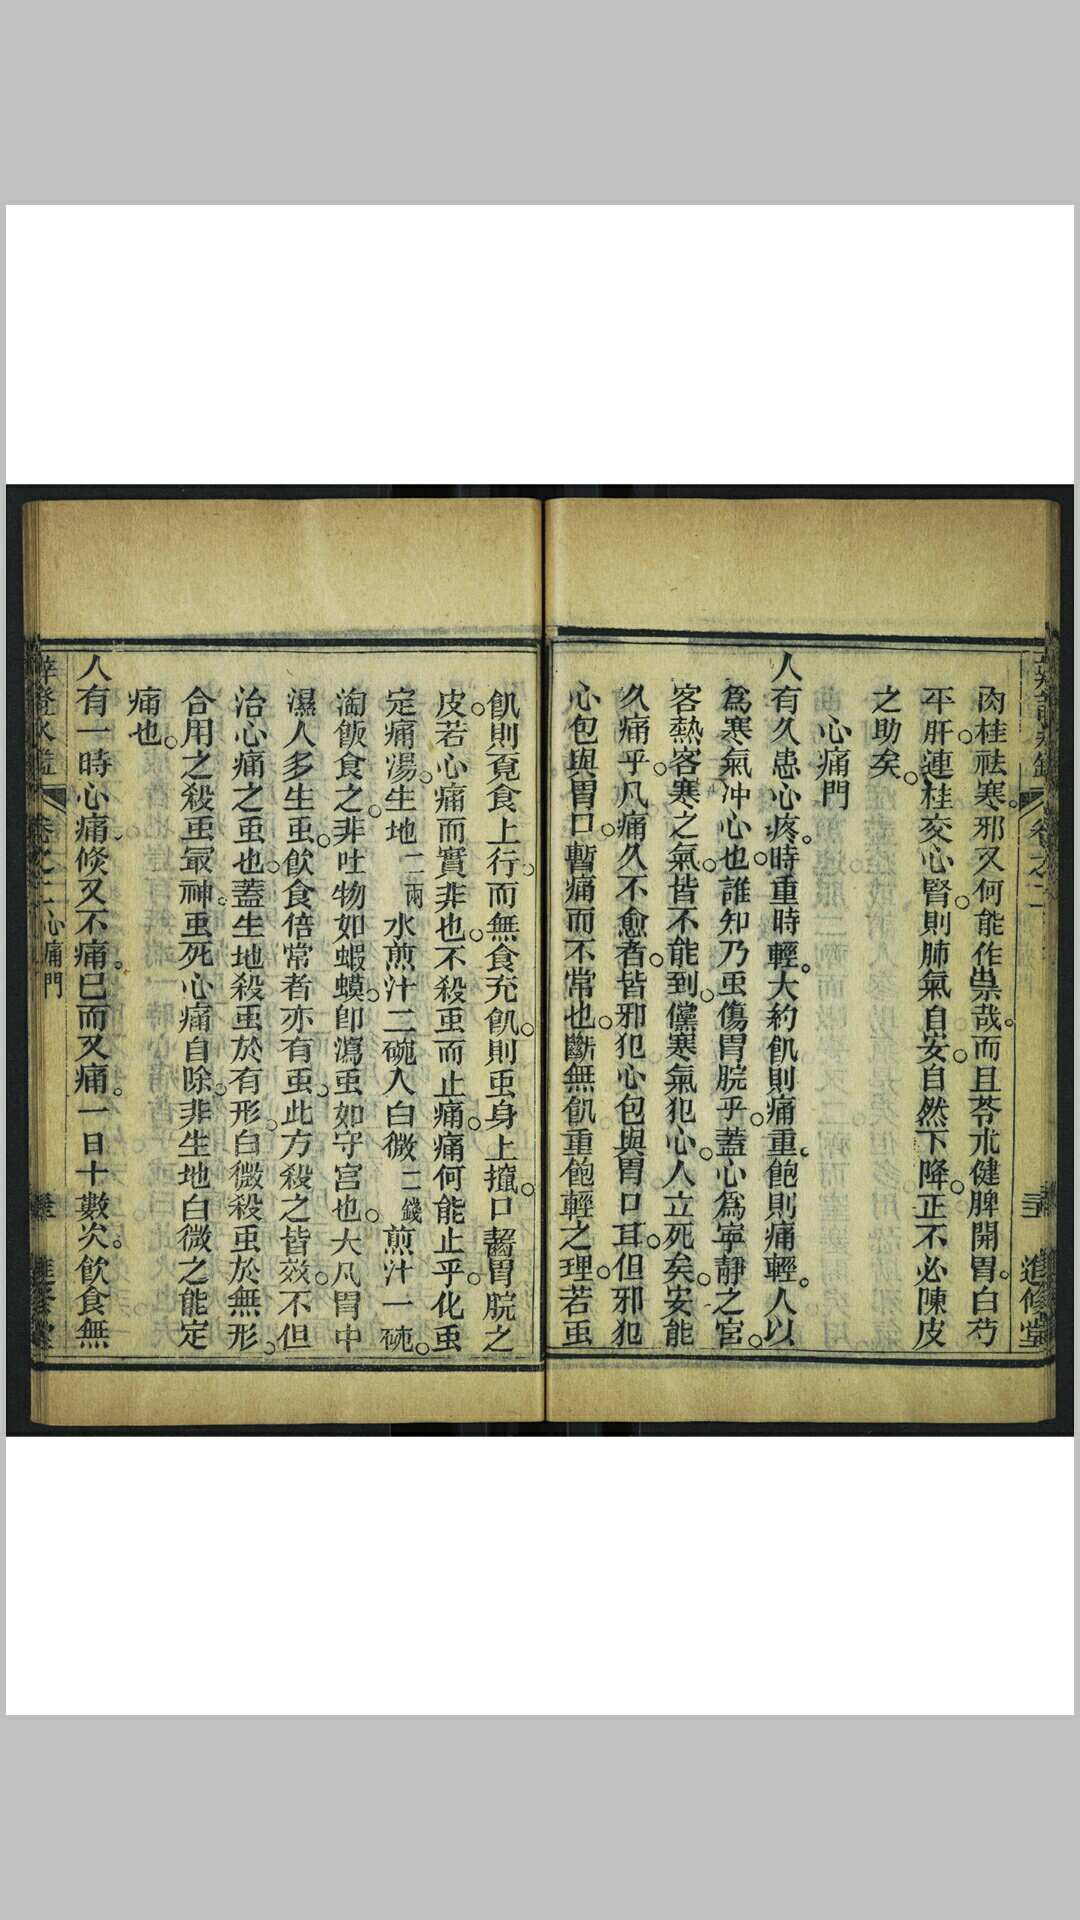 進修堂
肉桂祛寒邪又何能作祟哉而且苓朮健脾開胃白芍
平肝連桂交心腎則肺氣自安自然下降正不必陳皮
之助矣
心痛門
人有久患心疼時重時輕大約飢則痛重飽則痛輕人以
為寒氣冲心也誰知乃虫傷胃脘乎蓋心為寧靜之宮
客熱客寒之氣皆不能到儻寒氣犯心人立死矣安能
久痛乎凡痛久不愈者皆邪犯心包與胃口耳但邪犯
心包與胃口暫痛而不常也斷無飢重飽輕之理若虫
飢則覔食上行而無食充飢則虫身上攛口齧胃脘之
皮若心痛而實非也不殺虫而止痛痛何能止乎化虫
定痛湯生地二兩水煎汁二碗入白微二錢煎汁一碗
淘飯食之非吐物如蝦蟆卽瀉虫如守宮也大凡胃中
濕人多生虫飲食倍常者亦有虫此方殺之皆效不但
治心痛之虫也蓋生地殺虫於有形白微殺虫於無形
合用之殺虫最神虫死心痛自除非生地白微之能定
痛也
人有一時心痛倏又不痛已而又痛一日十數次飲食無
心痛門